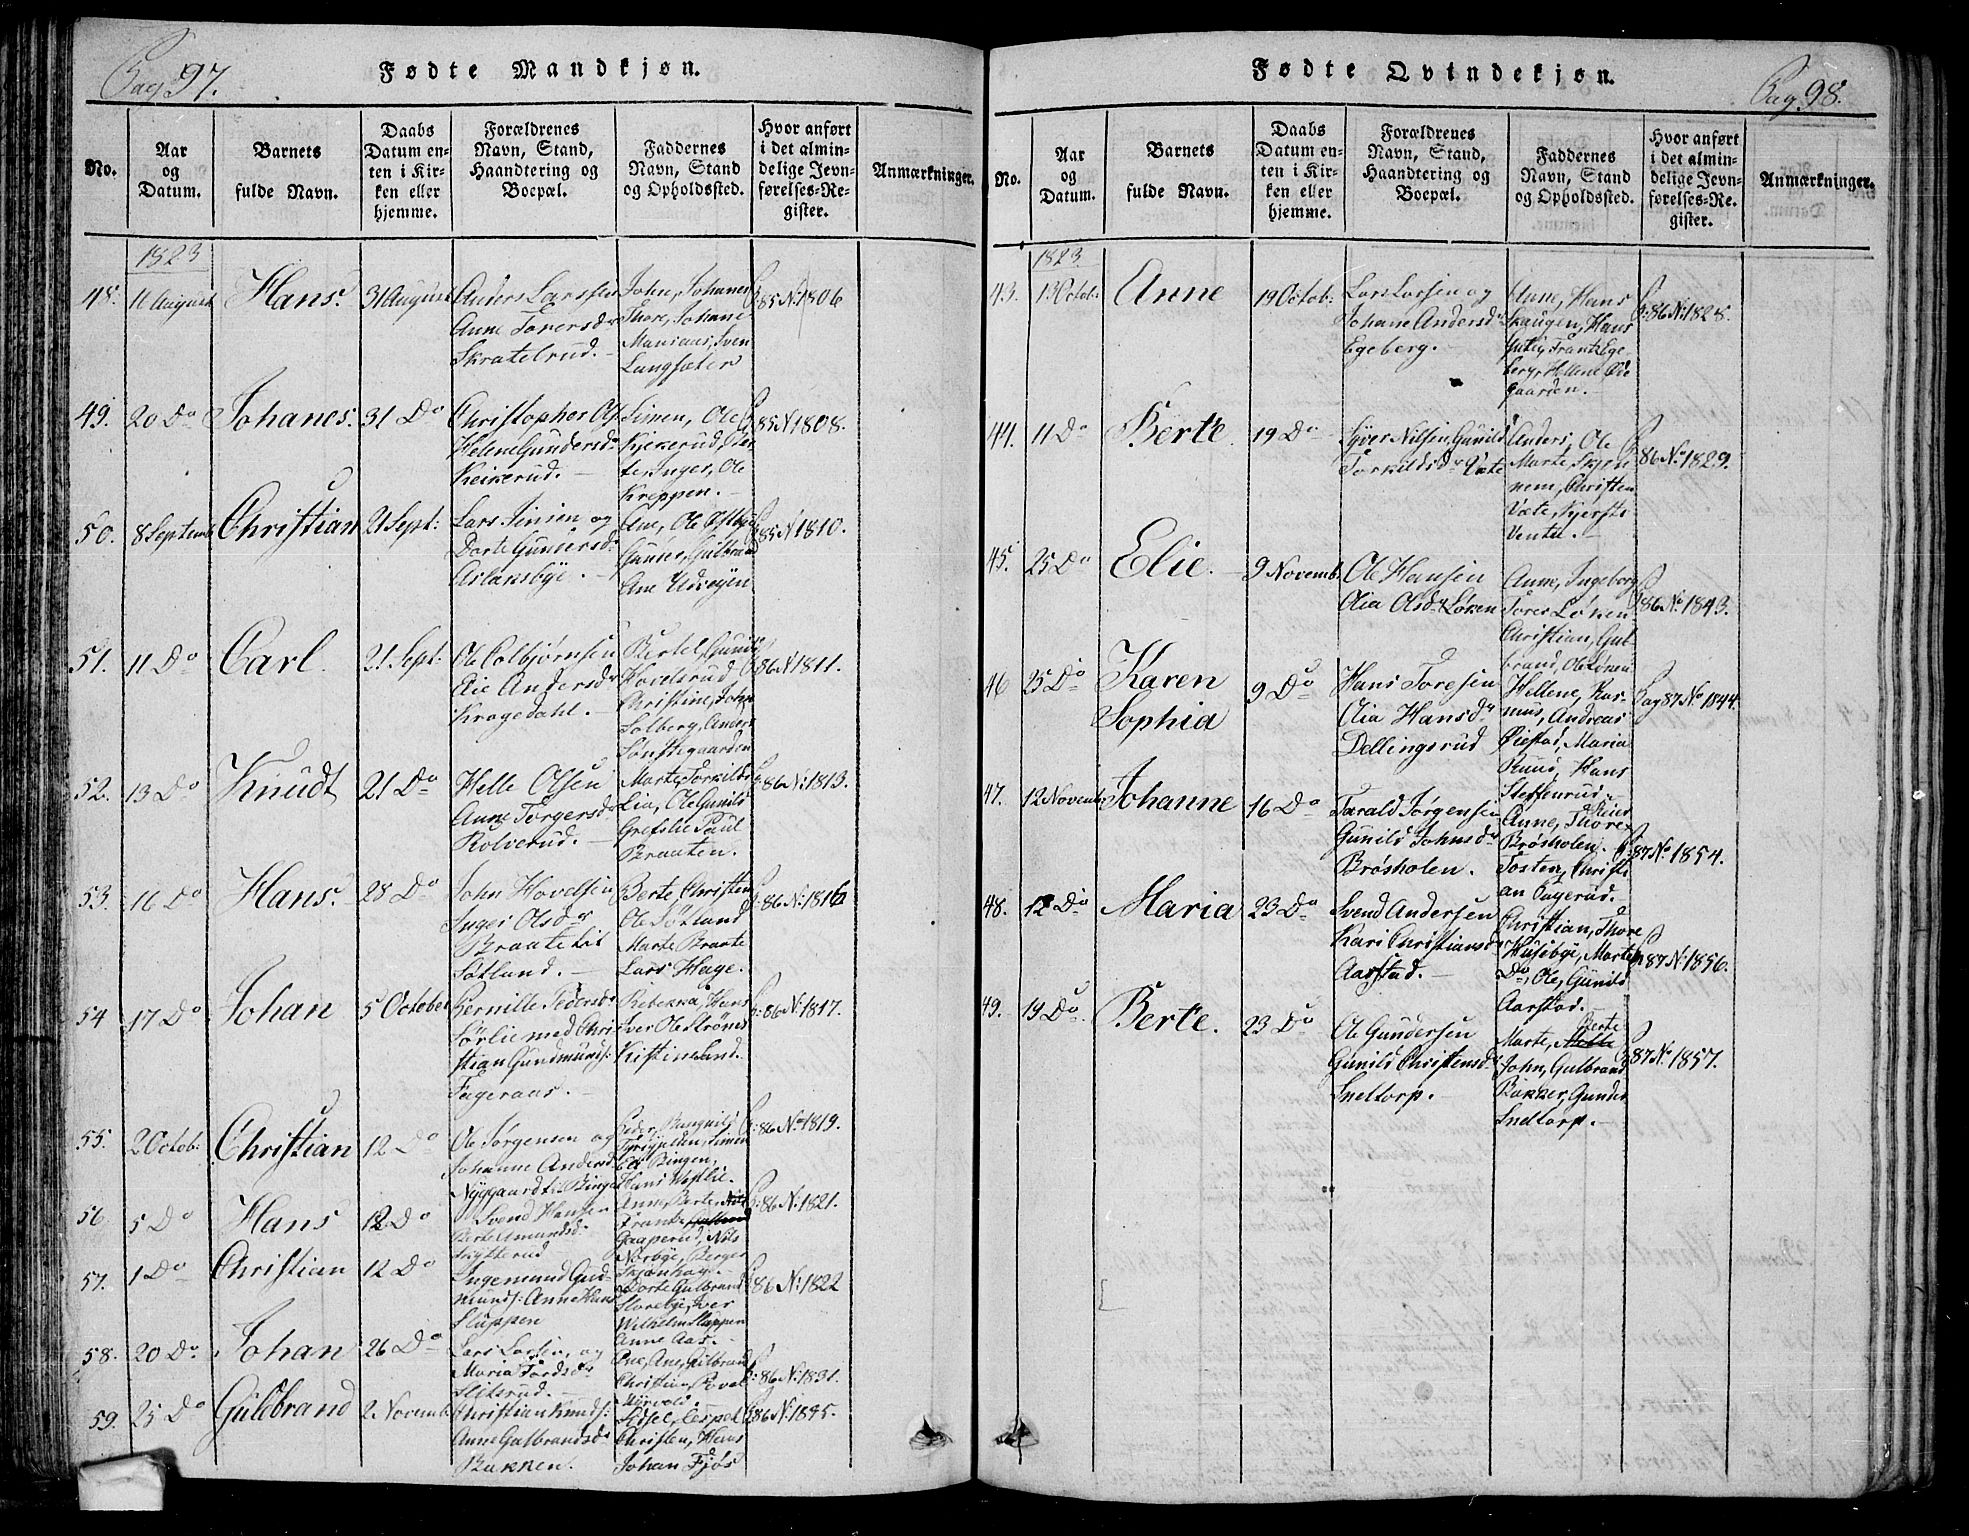 Pag 97.
Fødte Mandkjøn.
No.
Aar
og
Datum.
Barnets
fulde Navn.
Daabs
Datum en-
ten i Kir-
ken eller
hjemme.
Forældrenes
Navn, Stand,
Haandtering og
Boepæl.
Faddernes
Navn, Stand
og Opholdssted.
Hvor anført
i det almin-
delige Jevn-
førelses-Re-
gister.
Anmærkninger.
1823
48. 11 August Hans. 31 August
Anders Larssen
Anne Toresd
Skratelrud.
John, Johanes
Thore, Johane
Maniaus, Sven
Langsæter
85 N: 1806
49. 20 Do Johanes. 31 Do
Christopher Ols
Helene Gundersd
Keikerud.
Simen, Ole
Kjekerud, Pe-
ter Inger, Ole
Kreppen.
85 N: 1808.
50. 8 Septemb Christian 21 Sept:
Lars Jensen og
Dorte Gundersd
Aslaksbye.
Ane, Ole Østbye
Gunne, Gulbrand
Ane Udsøyen
85 N: 1810.
51. 11 Do Carl 21 Sept:
Ole Colbjørnsen
Elie Andersd
Kragedahl.
Bertel, Gunild
Hovelsrud
Christine, John
Solberg, Anders
Sønstegaarden
86 N: 1811.
52. 13 Do Knudt 21 Do
Helle Olsen
Anne Torgersd
Kolverud.
Marte Torkilds
Lia, Ole Gunild
Grefslie Paul
Braaten.
86 N: 1813.
53. 16 Do Hans. 28 Do
John Hovelsen
Inger Olsd
Braatehit
Søtland.
Berte, Christen
Ole Søtland
Marte Braate
Lars Hage.
86 N: 1816
54 17 Do Johan 5 October
Pernille Pedersd
Sørlie med Chri-
stian Gundmunds:
Fageraas.
Rebekka, Hans
Iver Ole Strøms
Kistine Lund.
86 N: 1817.
55. 2 Octob: Christian 12 Do
Ole Jørgensen og
Johanne Andersd
Nyggaard ti Binge
Peder, Ranguild
Bingen,
Hans Westlie.
86 No 1819.
56. 5 Do Hans 12 Do
Svend Hansen
Berte Amundsd
Frytterud
Anne, Berte
Frants
Gaaperud, Nils
Norbye, Berger
Skjønhaug.
86 N: 1821.
57. 1 Do Christian 12 Do
Ingemund Gud-
munds: Anne Hans
Sluppen
Dorte Gulbrand
Storebye, Iver
Wilhelm Sluppen
Anne Aas.
86 N: 1822
58. 20 Do Johan 26 Do
Lars Larsen, og
Maria Tordsd
Slitsrud.
Ane, Ane, Gulbrand
Christian Poval
86 N: 1831.
59. 25 Do Guldbrand 2 Novemb
Christian Knuds:
Anne Gulbrandsd
Bakken.
Sidsel, Espel
Christen, Hans
Johan Fjøs
86 N: 1845.
Pag 98.
Fødte Qvindekjøn.
No.
Aar
og
Datum.
Barnets
fulde Navn.
Daabs
Datum en-
ten i Kir-
ken eller
hjemme.
Forældrenes
Navn, Stand,
Haandtering og
Boepæl.
Faddernes
Navn, Stand
og Opholdssted.
Hvor anført
i det almin-
delige Jevn-
førelses-Re-
gister.
Anmærkninger.
1823
43. 13 Octob: Anne 19 Octob:
Lars Larsen og
Johane Andersd
Egeberg.
Anne, Hans
Skaugen, Hans
Frants Ege-
berg, Hellene Øde
gaarden.
86 N: 1828.
44. 11 Do Berte 19 Do
Syver Nilsen, Gunild
Torkildsd Væte
Anders, Ole
Marte Skjen
nem, Christen
Væte, Kjersti
Venter.
86 No 1829.
45. 25 Do Elie. 9 Novemb.
Ole Hansen
Olia Olsd Løken
Anne, Ingeborg
Tores Løken
Christian, Gul
brand, Ole Løken
86 No 1843.
46 25 Do Karen
Sophia
9 Do
Hans Toresen
Olia Hansd
Dellingsrud
Hellene, Ras-
mus, Andreas
Øiestad, Maria
Ruud, Hans
Steffenrud
Pag 87 No 1844.
47. 12 Novemb: Johanne 16 Do
Tarald Jørgensen
Gunild Johnsd
Brøsholen.
Anne, Thore
Brøsholen.
Tosten, Christi
an Fagerud.
87 No 1854.
48. 12 Do Maria 23 Do
Svend Andersen
Kari Christiansd
Aarstad.
Christian, Thore
Husebye, Marte
Do, Ole, Gunild
Aarstad.
87 N: 1856.
49. 19 Do Berte. 23 Do
Ole Gundersen
Gunild Christensd
Sneltorp.
Berte
Marte,
John, Gulbrand
Bakker, Gunder
Sneltorp.
87 No 1857.